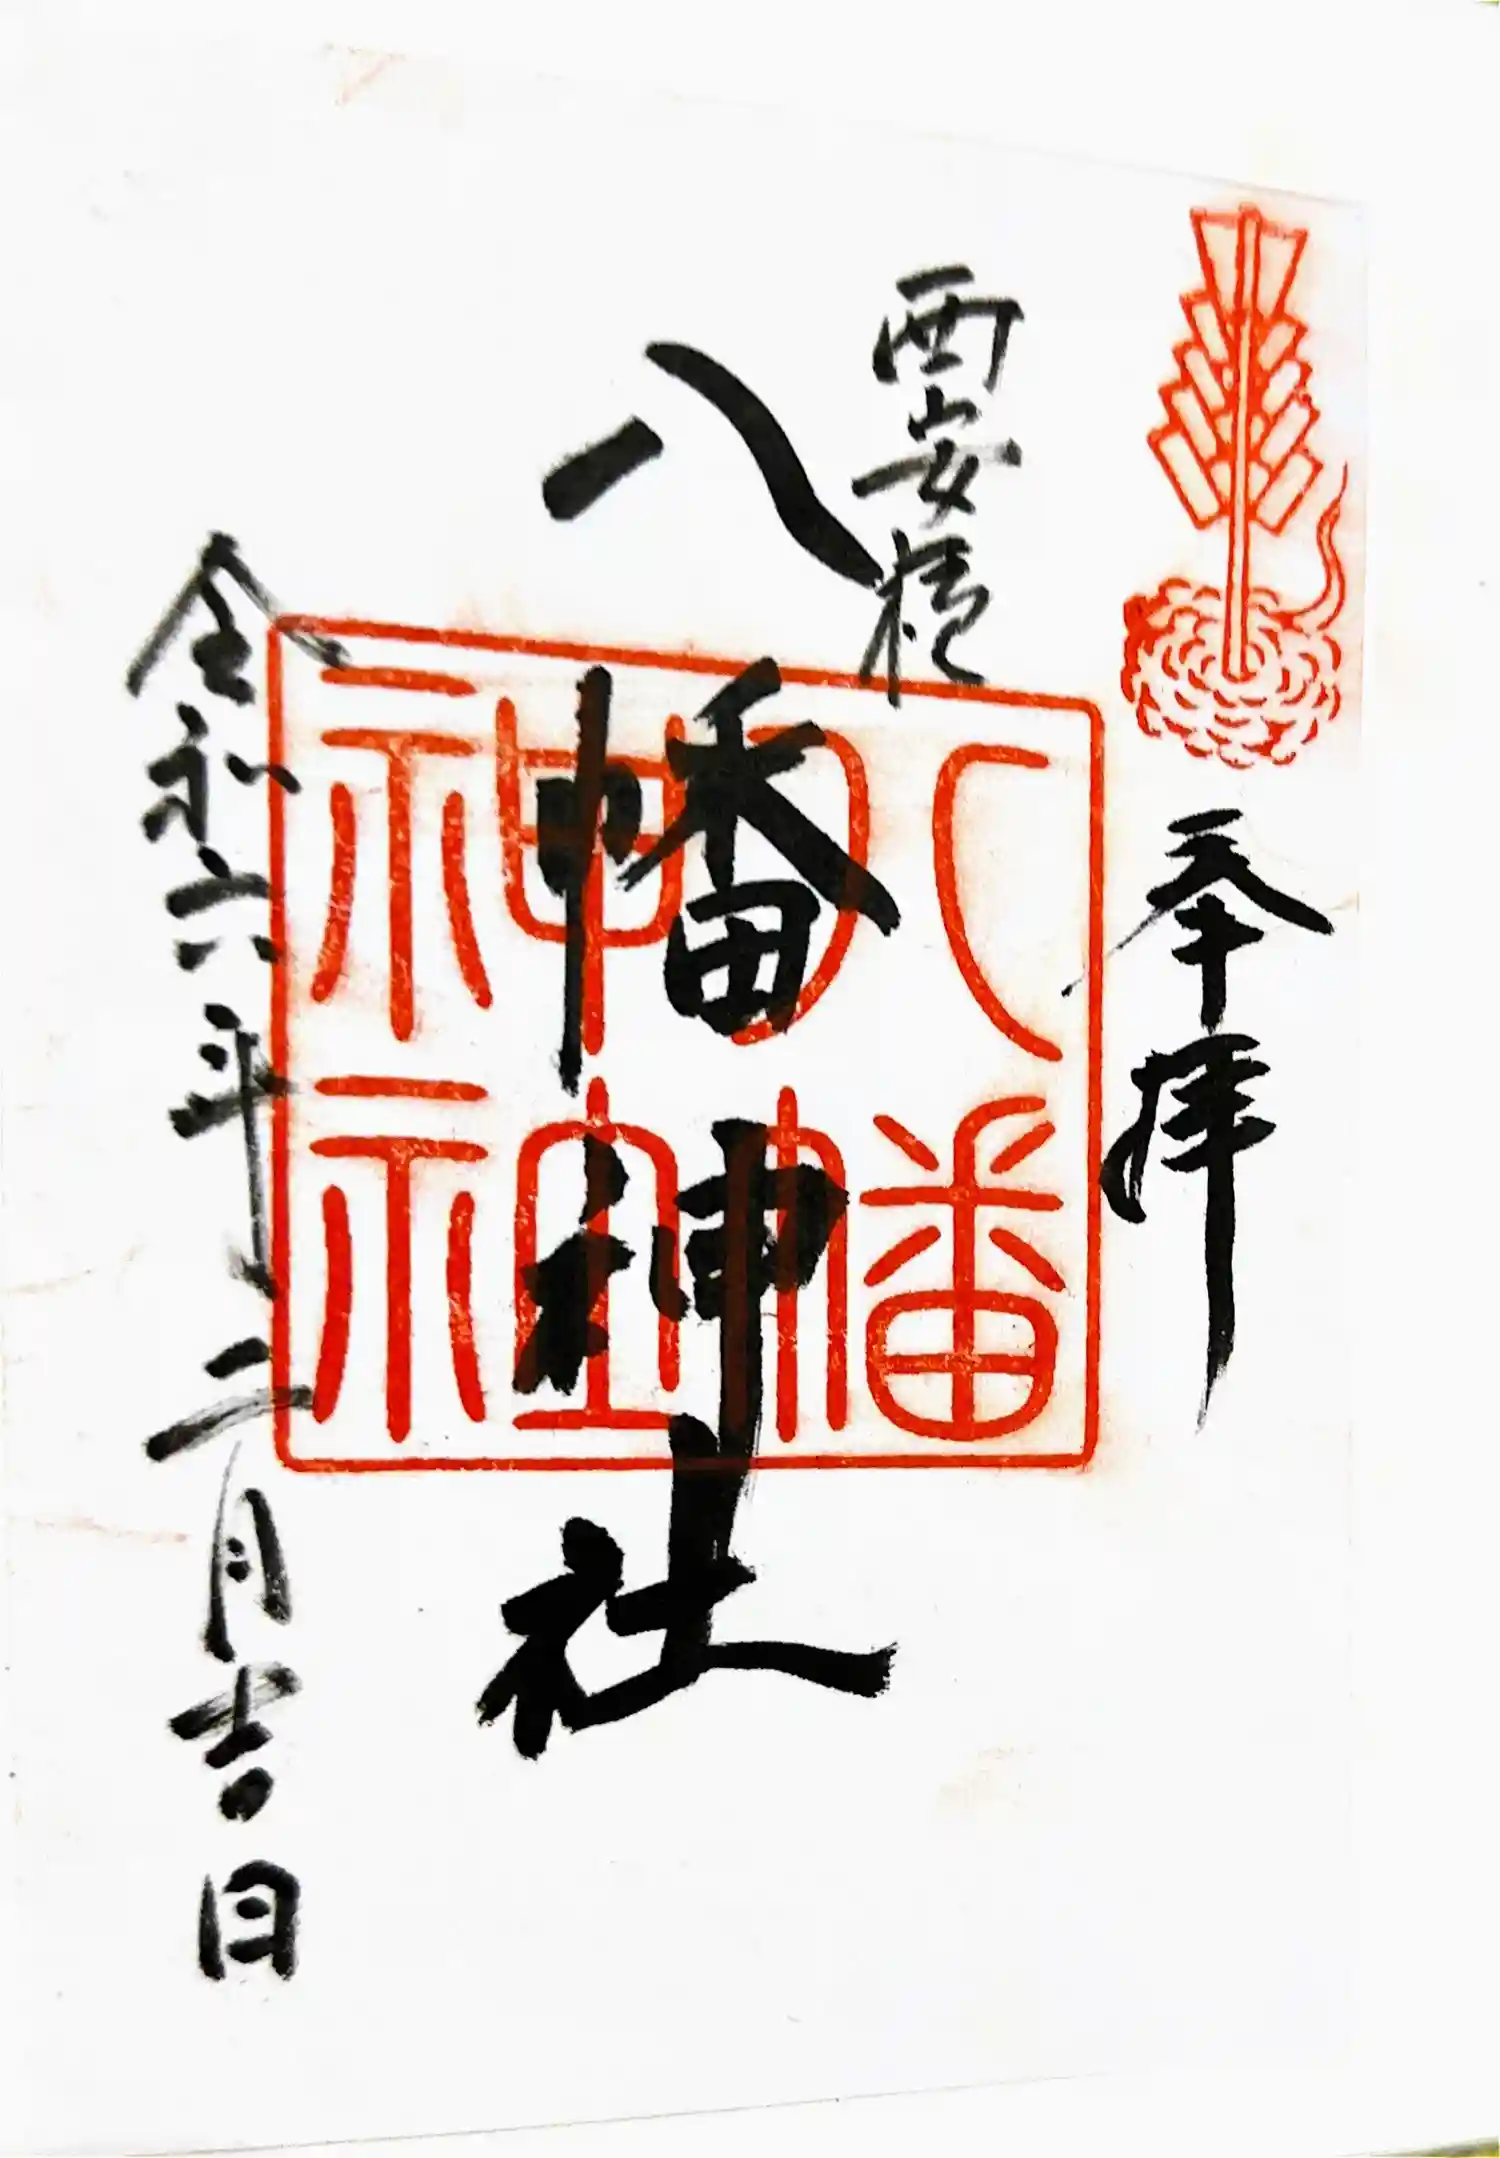 奉拝
西安楯
八幡神社
八幡神社
令和六年二月吉日